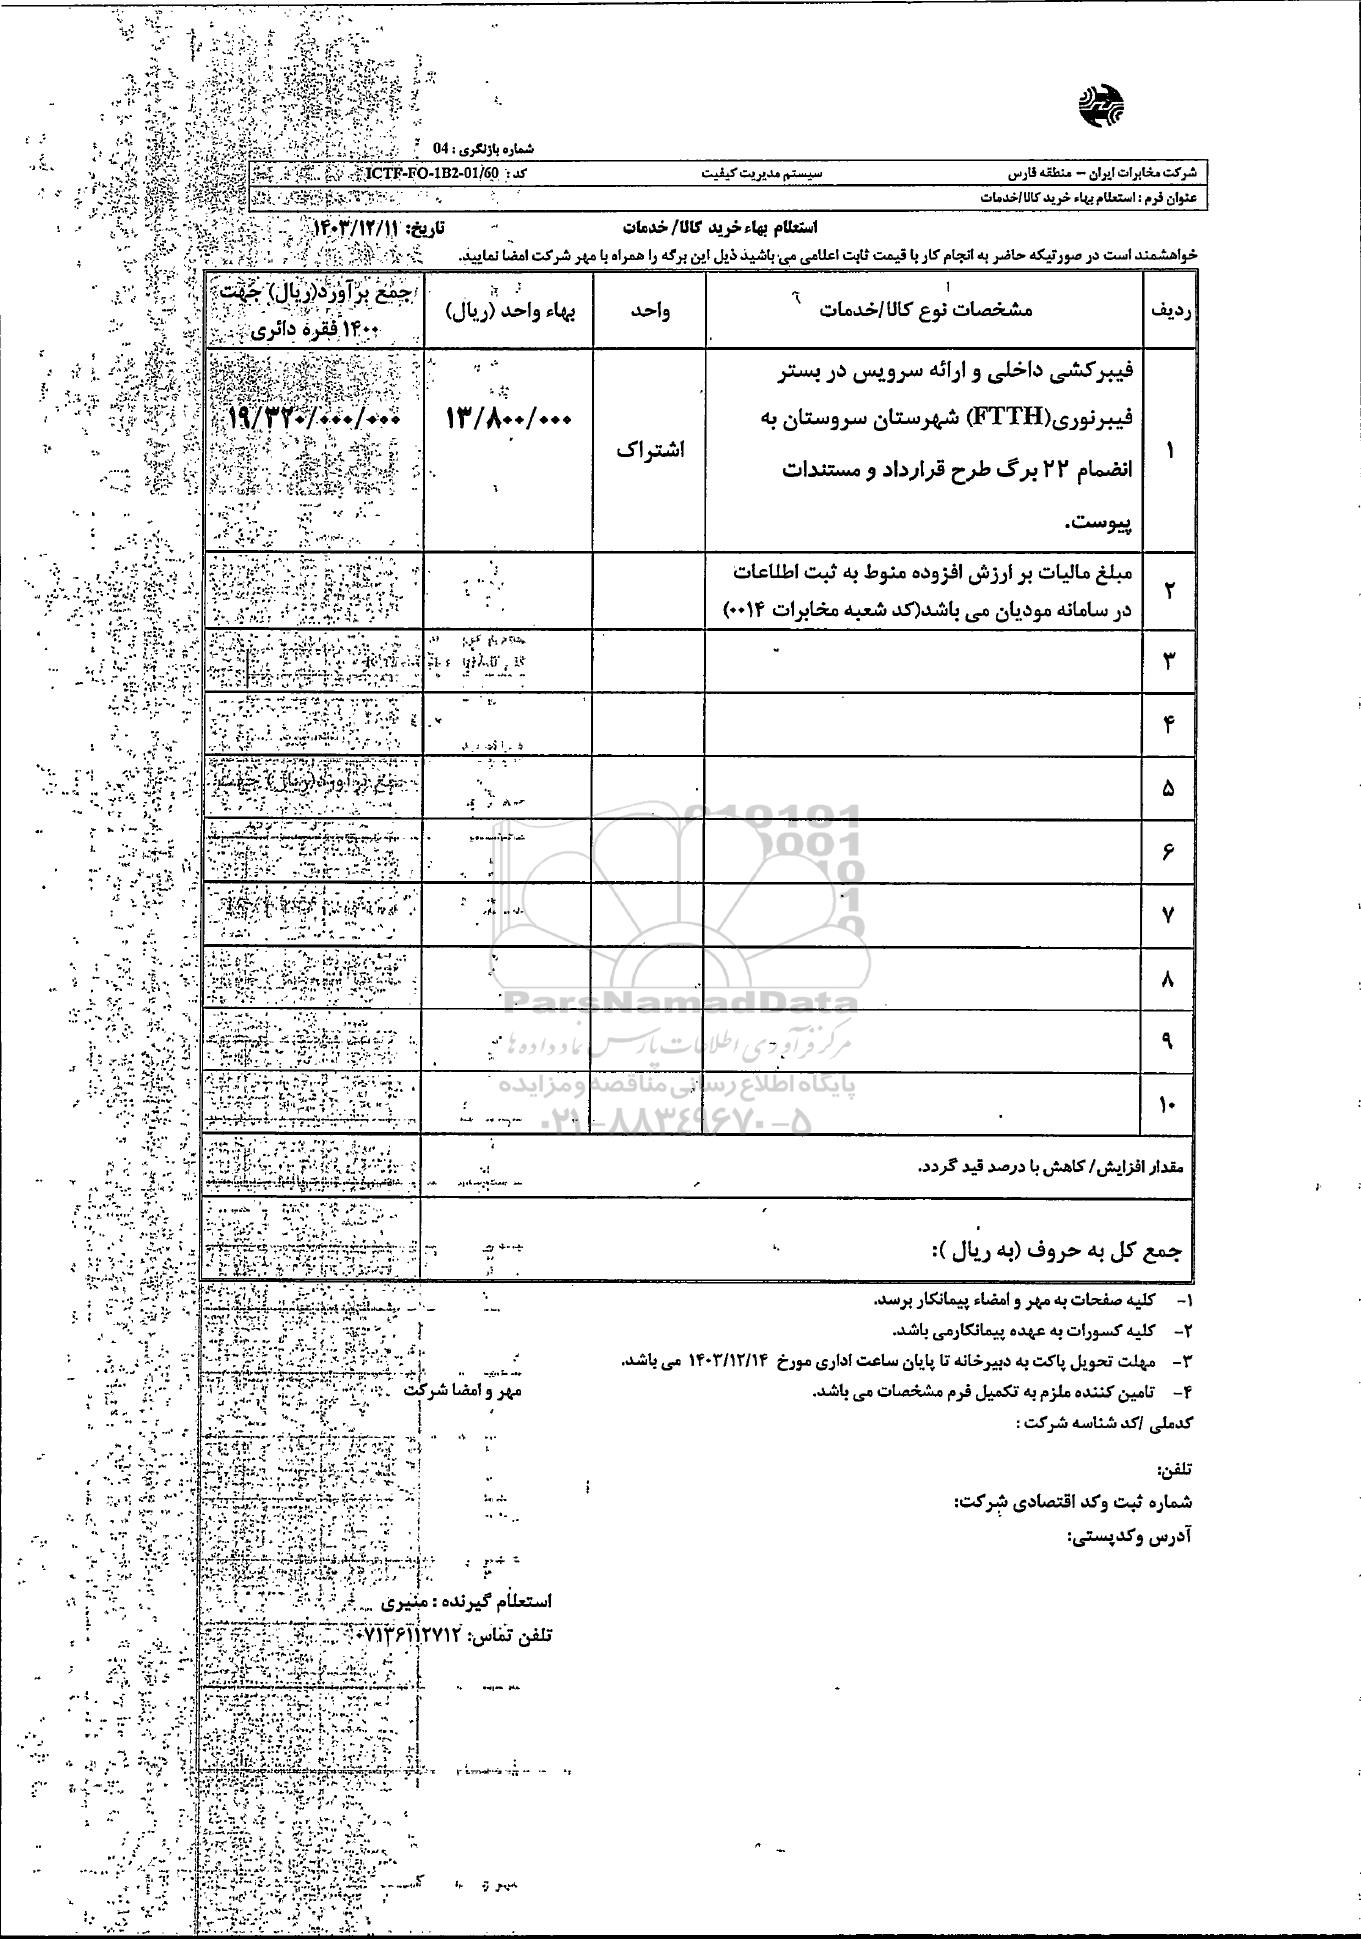 شماره بازنگری : 04
شرکت مخابرات ایران – منطقه فارس سیستم مدیریت کیفیت کد : ICTF-FO-1B2-01/60
عنوان فرم : استعلام بهاء خرید کالا/خدمات
استعلام بهاء خرید کالا/ خدمات تاریخ: ۱۴۰۳/۱۲/۱۱
خواهشمند است در صورتیکه حاضر به انجام کار با قیمت ثابت اعلامی می باشید ذیل این برگه را همراه با مهر شرکت امضا نمایید.
ردیف مشخصات نوع کالا/خدمات واحد بهاء واحد (ریال) جمع برآورد(ریال) جهت
۱۴۰۰ فقره دائری
۱ فیبرکشی داخلی و ارائه سرویس در بستر
فیبرنوری(FTTH) شهرستان سروستان به
انضمام ۲۲ برگ طرح قرارداد و مستندات
پیوست.
اشتراک ۱۳/۸۰۰/۰۰۰ ۱۹/۳۲۰/۰۰۰/۰۰۰
۲ مبلغ مالیات بر ارزش افزوده منوط به ثبت اطلاعات
در سامانه مودیان می باشد(کد شعبه مخابرات ۰۰۱۴)
۳
۴
۵
۶
۷
۸
۹
۱۰
010181
0001
10
1
0
ParsNamadData
مرکز فرآوری اطلاعات پارس نماد داده ها
پایگاه اطلاع رسانی مناقصه و مزایده
۰۲۱-۸۸۳۴۹۶۷۰-۵
مقدار افزایش/ کاهش با درصد قید گردد.
جمع کل به حروف (به ریال ):
۱- کلیه صفحات به مهر و امضاء پیمانکار برسد.
۲- کلیه کسورات به عهده پیمانکارمی باشد.
۳- مهلت تحویل پاکت به دبیرخانه تا پایان ساعت اداری مورخ ۱۴۰۳/۱۲/۱۴ می باشد.
۴- تامین کننده ملزم به تکمیل فرم مشخصات می باشد. مهر و امضا شرکت
کدملی /کد شناسه شرکت :
تلفن:
شماره ثبت وکد اقتصادی شرکت:
آدرس وکدپستی:
استعلام گیرنده : منیری
تلفن تماس: ۰۷۱۳۶۱۱۲۷۱۲